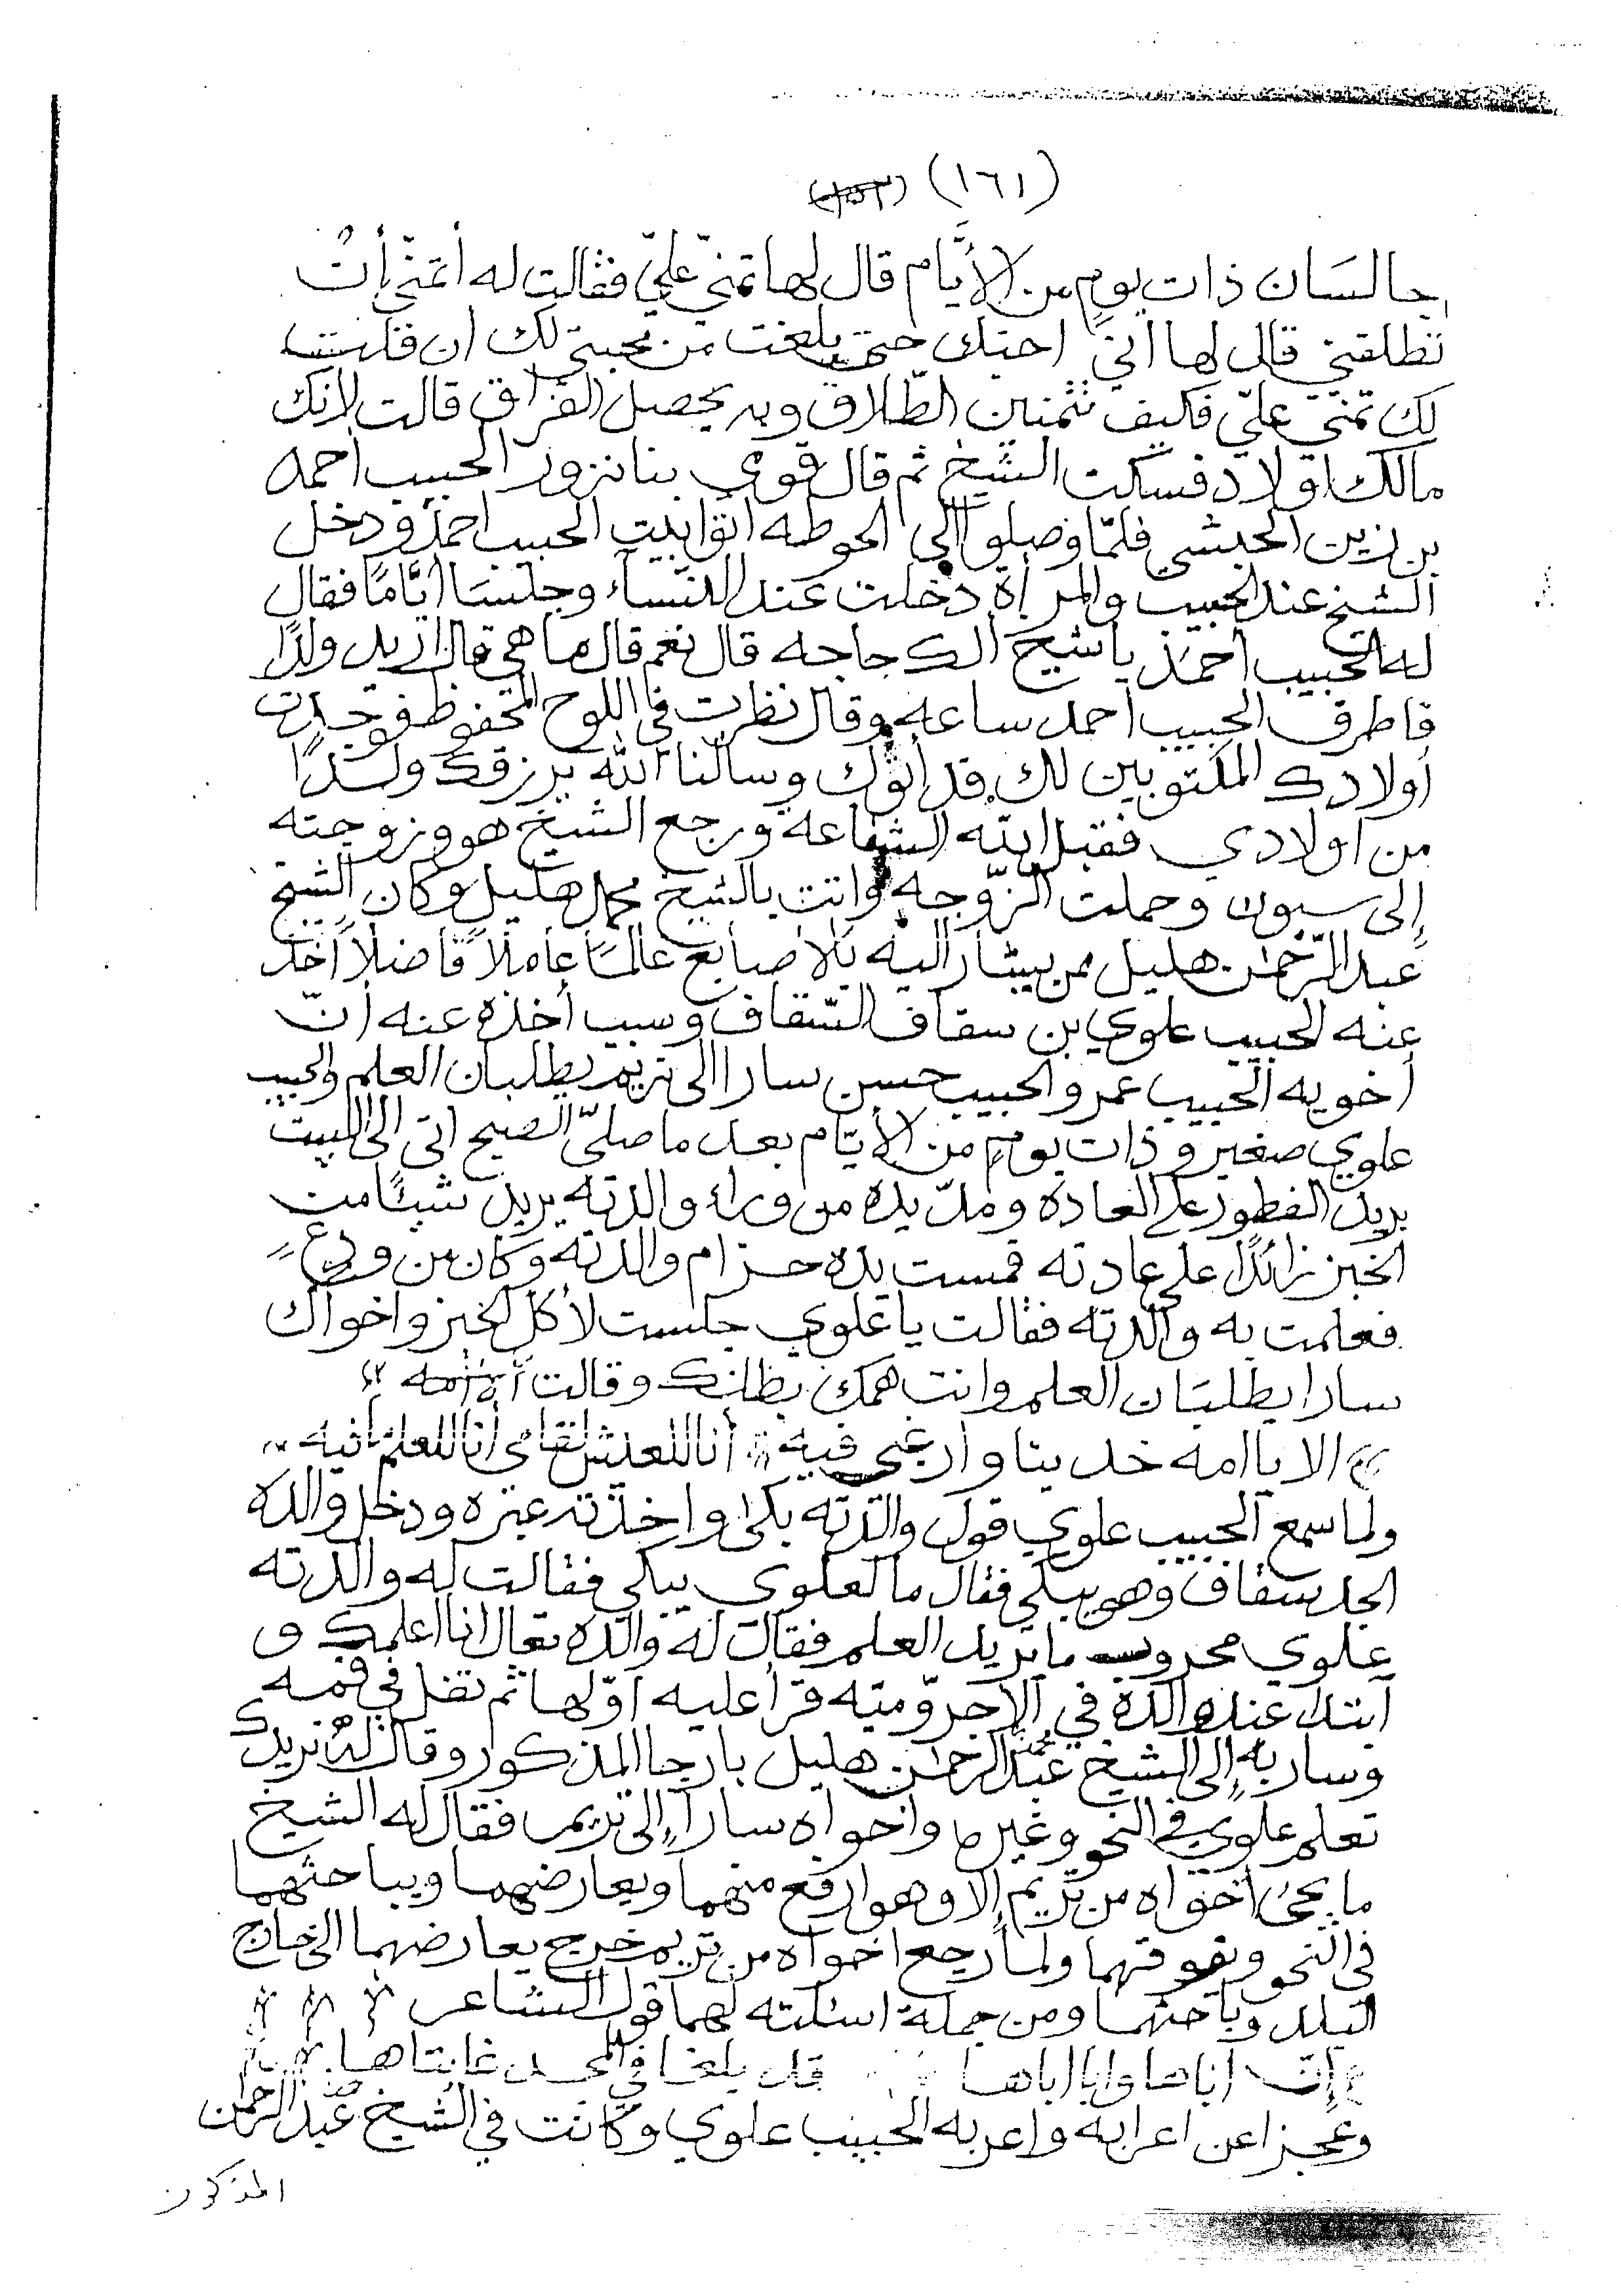 (١٦١) (١٥٣)
جالسَان ذات يومٍ من الأيَّام قال لها تمنّي عليّ فقالت له أتمنّى أنْ
تطلقني قال لها انّي احبّك حتى بلغت من محبتي لك ان قلت
لك تمنّي عليّ فكيف تتمنين الطّلاق وبه يحصل الفراق قالت لانك
مالك اولاد فسكت الشيخ ثم قال قومي بنا نزور الحبيب احمد
بن زين الحبشي فلمّا وصلوا إلى الحوطه اتوا بيت الحبيب احمد ودخل
الشيخ عند الحبيب والمرأة دخلت عند النّساء وجلسَا أيَّامًا فقال
له الحبيب احمد يا شيخ ألك حاجه قال نعم قال ما هي قال اريد ولدًا
فاطرق الحبيب احمد ساعه وقال نظرت في اللوح المحفوظ فوجدت
أولادك المكتوبين لك قد أتوك وسألنا الله يرزقك ولدًا
من اولادي فقبل الله الشفاعة ورجع الشيخ هو وزوجته
إلى سيون وحملت الزّوجه واتت بالشيخ محمد هليل وكان الشيخ
عبد الرّحمن هليل ممن يشار اليه بالأصابع عالمًا عاملًا فاضلًا أخذ
عنه الحبيب علوي بن سقاف السّقاف وسبب أخذه عنه أنّ
أخويه الحبيب عمر والحبيب حسن سارا الى تريم يطلبان العلم والحبيب
علوي صغير وذات يومٍ من الأيّام بعد ما صلّى الصبح اتى الى البيت
يريد الفطور على العادة ومدّ يده من وراء والدته يريد شيئًا من
الخبز زائدًا على عادته فمست يده حزام والدته وكان من ودعٍ
فعلمت به والدته فقالت يا علوي جلست لأكل الخبز واخوانك
سارا يطلبَان العلم وانت همك بطنك وقالت
الا يا امه خذ بينا وارغبي فيه أنا للعلش لقائي أنا للعلم ثانيه
ولما سمع الحبيب علوي قول والدته بكى واخذته عبره ودخل والده
الجد سقاف وهو يبكي فقال ما لعلوي يبكي فقالت له والدته
علوي محروب ما يريد العلم فقال له والده تعال انا اعلمك و
ابتدا عنده والده في الاجرّوميّه قرأ عليه اوّلها ثم تفل في فمه
وسار به إلى الشيخ محمد بن عبد الرحمن هليل بارجا المذكور وقال له نريدك
تعلم علوي في النحو وغيره واخواه سارا إلى تريم فقال له الشيخ
ما يجئ أخواه من تريم إلا وهو ارفع منهما ويعارضهما ويباحثهما
في النحو ويفوقهما ولما رجع اخواه من تريم خرج يعارضهما الى خارج
البلد وباحثهما ومن جملة اسئلته لهما قول الشاعر
إنّ اباها وابا اباها قد بلغا في المجد غايتاها
وعجزا عن اعرابه واعربه الحبيب علوي وكانت في الشيخ محمد بن عبد الرحمن
المذكور